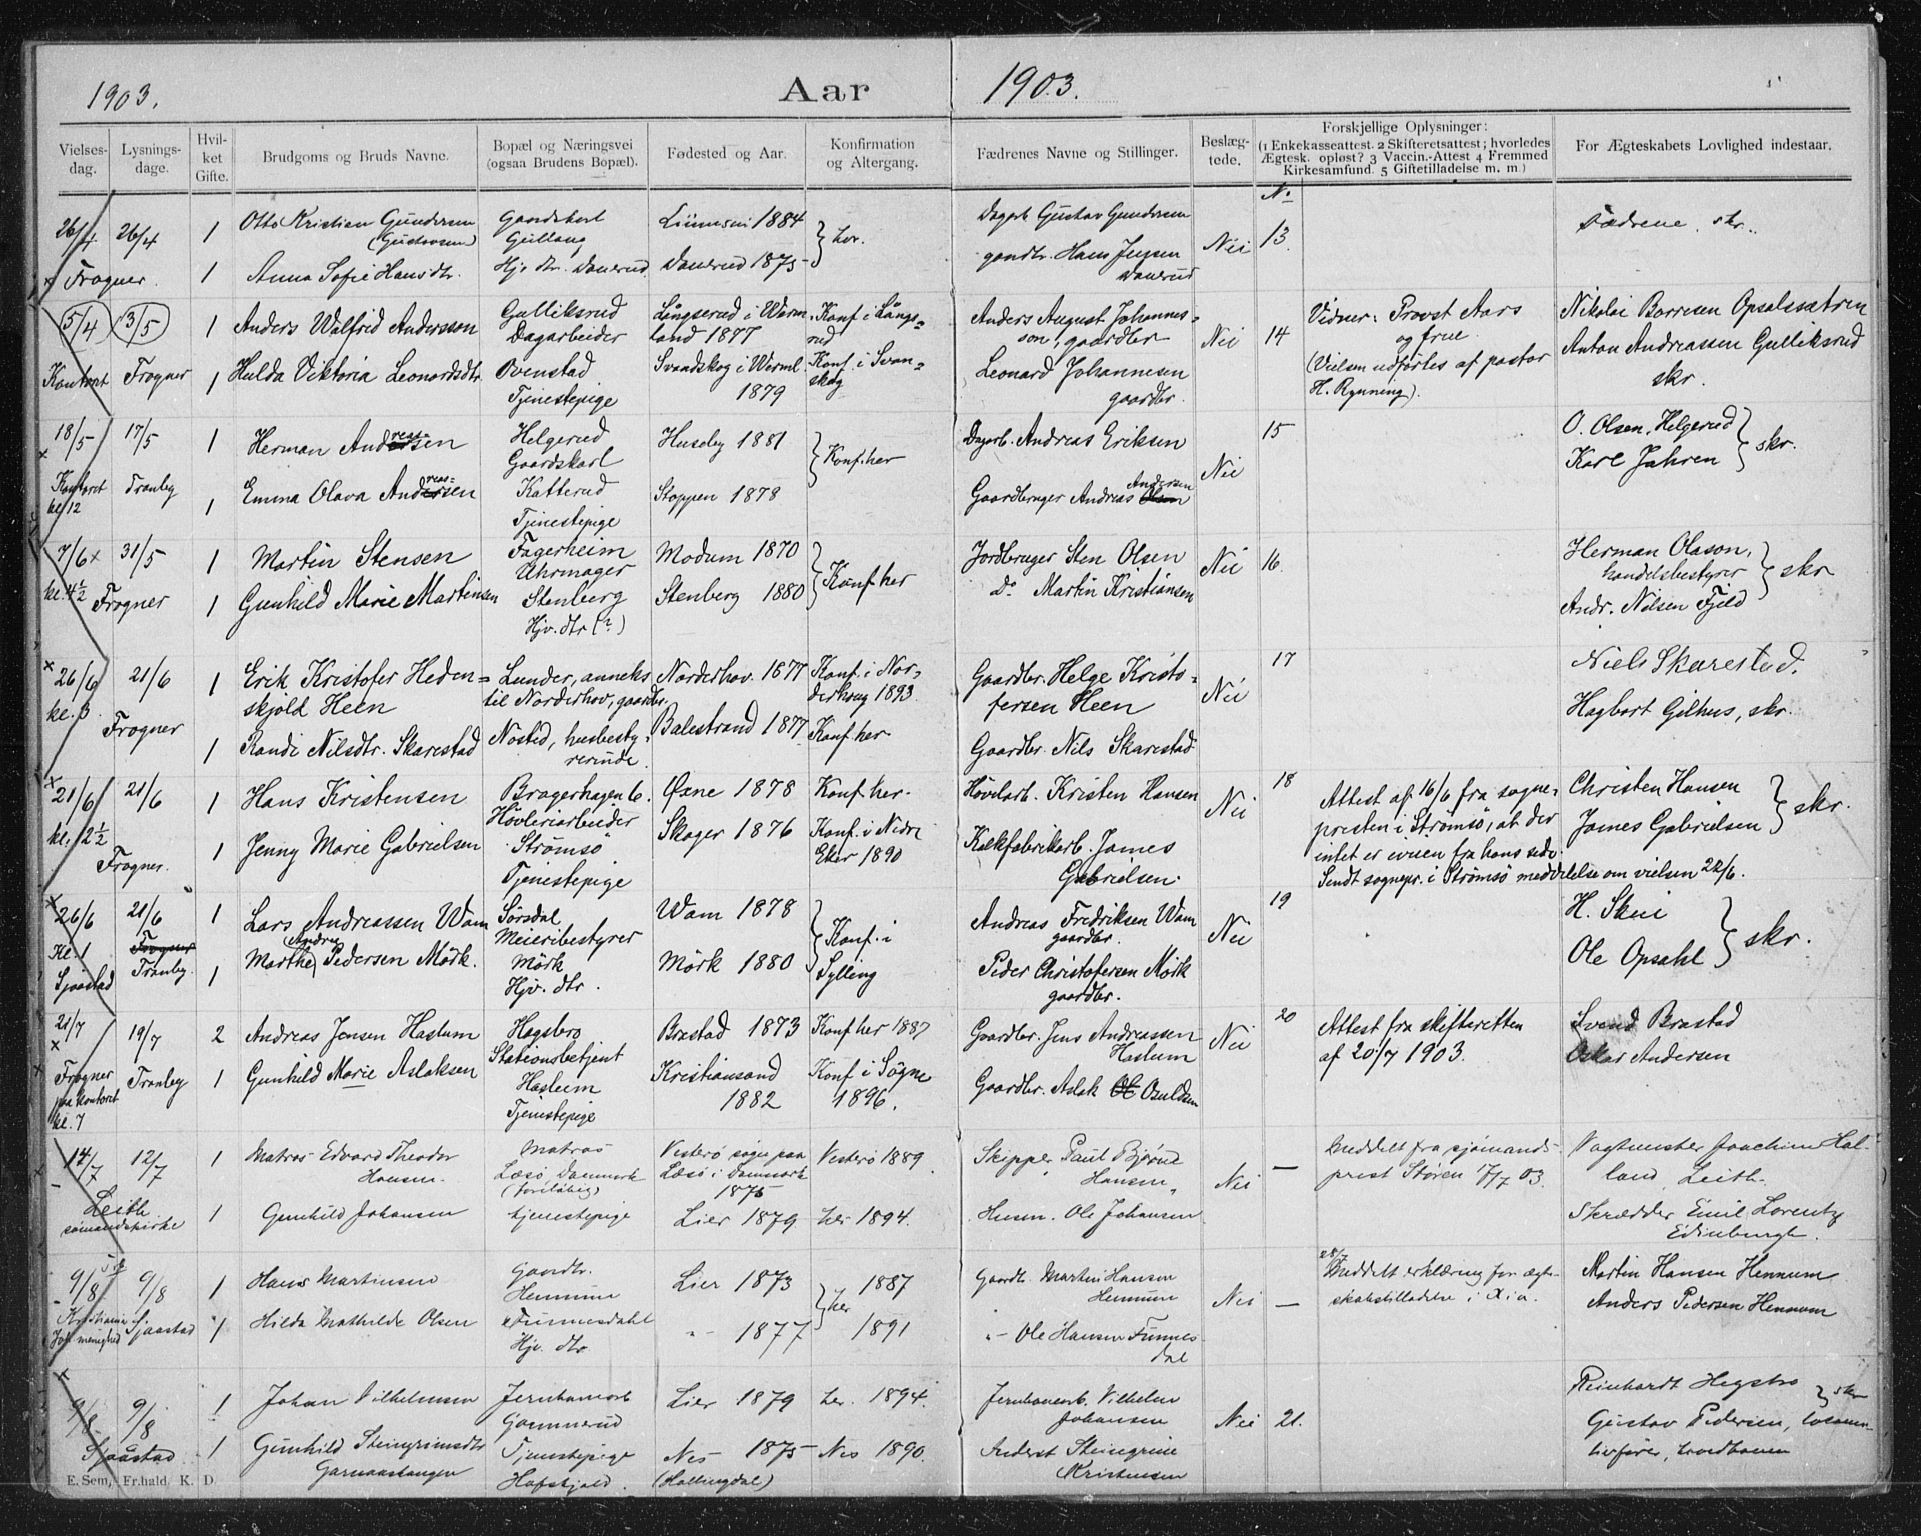 1903. Aar 1903.
Vielses-dag. Lysnings-dage. Hvil-ket Gifte. Brudgoms og Bruds Navne. Bopæl og Næringsvei (ogsaa Brudens Bopæl). Fødested og Aar. Konfirmation og Altergang. Fædrenes Navne og Stillinger. Beslæg-tede. Forskjellige Oplysninger: (1 Enkekasseattest. 2 Skifteretsattest; hvorledes Ægtesk. opløst? 3 Vaccin.-Attest 4 Fremmed Kirkesamfund. 5 Giftetilladelse m. m.) For Ægteskabets Lovlighed indestaar.
No
26/4 26/4 1 Otto Kristian Gundersen Gaardskarl 1884 Dagarb. Gustav Gundersen
(Gustavsen) Gullaug } her. Nei 13. Fædrene. skr.
× Frogner. 1 Anna Sofie Hansdtr. Hjv. dtr. Danerud Danerud 1875 gaardbr. Hans Jensen
Danerud
5/4 3/5 1 Anders Walfrid Andersson Gulliksrud Långserud i Werm- Konf. i Långs= Anders August Johannes= Nei 14 Vidner: Provst Aars Nikolai Borresen Opsalssætren
Dagarbeider land 1877 rud son, gaardbr og frue
Kontoret Frogner 1 Hulda Viktoria Leonardsdtr Ovenstad Svandskog i Werml. Konf. i Svan= Leonard Johannesen (Vielsen udførtes af pastor Anton Andreassen Gulliksrud
Tjenestepige 1879 skog gaardbr. H. Rynning). skr.
18/5 17/5 1 Herman Andreassen Helgerud Huseby 1881 Dagarb. Andreas Eriksen 15 O. Olsen, Helgerud
Gaardskarl } Konf. her Nei Karl Jahren } skr.
Kontoret Tranby 1 Emma Olava Andreassen Katterud Stoppen 1878 Gaardbruger Andreas Olsen Andersen
kl. 12 Tjenestepige
7/6 × 31/5 1 Martin Stensen Fagerheim Modum 1870 Jordbruger Sten Olsen Nei 16. Herman Olason,
Uhrmager } Konf. her handelsbestyrer } skr
kl. 4½ Frogner 1 Gunhild Marie Martinsen Stenberg Stenberg 1880 Do Martin Kristiansen Andr. Nilsen Fjeld
Hjv. dtr (?)
× 26/6 21/6 1 Erik Kristofer Heden= Lunder, anneks Norderhov. 1877 Konf. i Nor= Gaardbr. Helge Kristo= Nei 17 Niels Skarestad.
kl. 3. skjold Heen til Norderhov, gaardbr. derhoug 1893. fersen Heen
Frogner 1 Randi Nilsdtr. Skarestad Nøsted, husbesty- Balestrand 1877 Konf. her Gaardbr. Nils Skarestad Hagbart Gilhus, skr.
rerinde.
× 21/6 21/6 1 Hans Kristensen Bragerhagen 6. 1878 Konf. her. Høvelarb. Kristen Hansen Nei 18 Attest af 16/6 fra sogne= Christen Hansen
Høvleriarbeider presten i Strømsø, at der } skr.
kl. 12½ 1 Jenny Marie Gabrielsen Strømsø Skoger 1876 Konf. i Nedre Kalkfabrikarb. James intet er iveien fra hans side. James Gabrielsen
Frogner. Tjenestepige Eker 1890 Gabrielsen. Sendt sognepr. i Strømsø meddelelse om vielsen 22/6.
26/6 21/6 1 Lars Andreassen Wam Sørsdal Wam 1878 Andreas Fredriksen Wam Nei 19 H. Skui
Kl. 1 Frogner Meieribestyrer } Konf. i gaardbr. } skr.
Sjaastad Tranby. 1 Marthe Andrea Pedersen Mörk. Mörk Mörk 1880 Sylling Peder Christofersen Mörk Ole Opsahl
Hjv. dtr. gaardbr.
21/7 19/7 2 Andreas Jensen Haslum Hegsbro Brastad 1873 Konf. her 1887 Gaardbr. Jens Andreassen Nei 20 Attest fra skifteretten Svend Brastad
× Stationsbetjent Haslum af 20/7 1903. Oskar Andersen
Frogner Tranby 1 Gunhild Marie Aslaksen Haslum Kristiansand Konf. i Søgne Gaardbr. Aslak Osuldsen
paa kontoret Tjenestepige 1882 1896.
kl. 7
14/7 12/7 1 Matros Edvard Theodor Matros Vesterö sogn paa Vesterö 1889. Skipper Paul Björne Nei — Meddelt fra sjømands- Vagtmester Joachim Hal-
Hansen. Læsö, Danmark Læsö i Danmark Hansen prest Støren 17/7 03. land, Leith.
(foreløbig) 1875
Leith sømandskirke 1 Gunhild Johansen tjenestepige Lier 1879. her 1894. Husm. Ole Johansen Skrædder Emil Lorentz
Edinburgh.
9/8 9/8 1 Hans Martinsen Gaardbr. Lier 1873 1887 Gaardb. Martin Hansen 28/7 Meddelt erklæring for ægte- Martin Hansen Hennum
Hennum } her Hennum Nei — skabstilladelse i Xia. Anders Pedersen Hennum
Kristiania Sjaastad 1 Hilda Mathilde Olsen Tunnesdahl " 1877 1891 " Ole Hansen Tunnes-
menighed Hjv. dtr. dal
9/8 9/8 1 Johan Vilhelmsen Jernbanearb Lier 1879 her 1894. Jernbanearb. Vilhelm Reinhardt Hegsbro
Gjemmerud Johansen Nei 21. } skr
Sjaastad 1 Gunhild Steingrimsdtr Tjenestepige Nes 1875 Nes 1890. Steingrim Gustav Pedersen,
Garnaastangen (Hallingdal) Kristensen
E. Sem, Fr.hald. K. D.